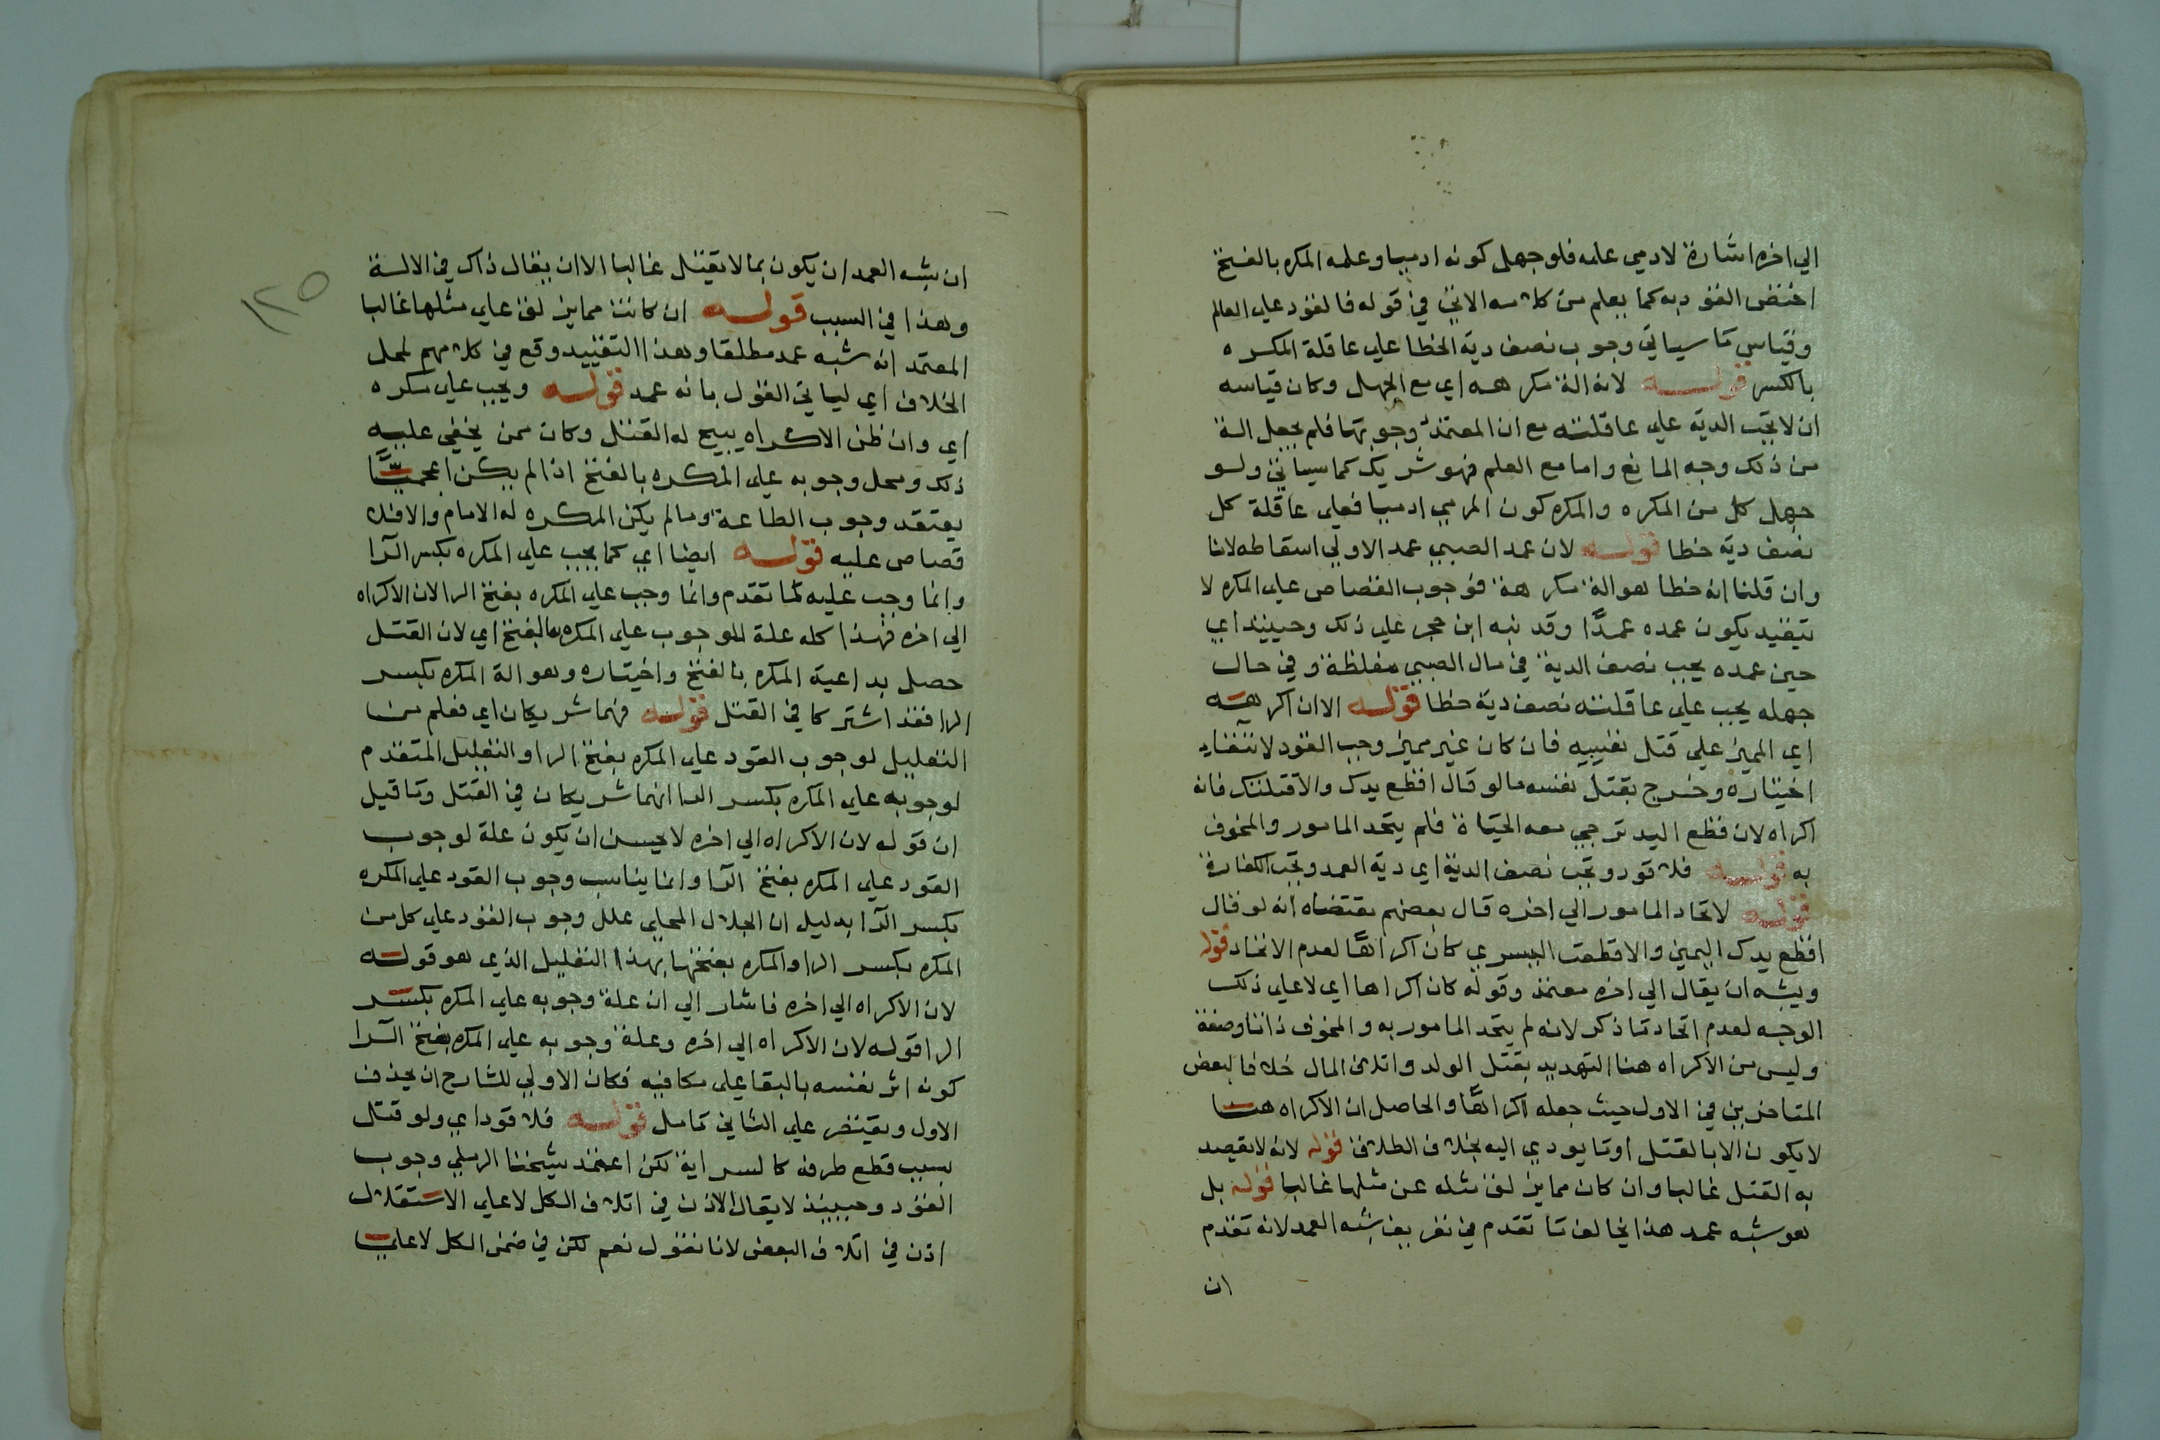 الي اخره اشارة لادمي علمه فلو جهل كونه ادميا وعلمه المكره بالفتح
اختص القود به كما يعلم من كلامه الاتي في قوله فالقود علي العالم
وقياس ما سياتي وجوب نصف دية الخطا علي عاقلة المكره
بالكسر قوله لانه الة مكرهه اي مع الجهل وكان قياسه
ان لا تجب الدية علي عاقلته مع ان المعتمد وجوبها فلم يجعل الة
من ذلك وجه المانع واما مع العلم فهو شريك كما سياتي ولو
جهل كل من المكره والمكره كون المرمي ادميا فعلي عاقلة كل
نصف دية خطا قوله لان عمد الصبي عمد الاولي اسقاطه لانا
وان قلنا انه خطا هو الة مكرهة فوجوب القصاص علي المكره لا
يتقيد بكون عمده عمدًا وقد نبه ابن حجر علي ذلك وحينيذ اي
حين عمده يجب نصف الدية في مال الصبي مغلظة وفي حال
جهله يجب علي عاقلته نصف دية خطا قوله الا ان اكرهه
اي المميز علي قتل نفسه فان كان غير مميز وجب القود لانتفاء
اختياره وخرج بقتل نفسه ما لو قال اقطع يدك والا قتلتك فانه
اكراه لان قطع اليد ترجي معه الحياة فلم يتحد المامور والمخوف
به قوله فلا قود وتجب نصف الدية اي دية العمد وتجب الكفارة
قوله لاتحاد المامور الي اخره قال بعضهم مقتضاه انه لو قال
اقطع يدك اليمني والا قطعت اليسري كان اكراهًا لعدم الاتحاد قوله
ويشبه ان يقال الي اخره معتمد وقوله كان اكراها اي لا علي ذلك
الوجه لعدم اتحاد ما ذكر لانه لم يتحد المامور به والمخوف ذاتا وصفة
وليس من الاكراه هنا التهديد بقتل الولد واتلاف المال خلافا لبعض
المتاخرين في الاول حيث جعله اكراهًا والحاصل ان الاكراه هنا
لا يكون الا بالقتل او ما يودي اليه بخلاف الطلاق قوله لانه لا يقصد
به القتل غالبا وان كان مما يزلق مثله عن مثلها غالبا قوله بل
هو شبه عمد هذا يخالف ما تقدم في تعريف شبه العمد لانه تقدم
ان
١٢٥
ان شبه العمد ان يكون بما لا يقتل غالبا الا ان يقال ذاك في الالة
وهذا في السبب قوله ان كانت مما يزلق علي مثلها غالبا
المعتمد انه شبه عمد مطلقا وهذا التقييد وقع في كلامهم لمحل
الخلاف اي لياتي القول بانه عمد قوله ويجب علي مكره
اي وان ظن الاكراه يبيح له القتل وكان ممن يخفي عليه
ذلك ومحل وجوبه علي المكره بالفتح اذا لم يكن اعجميًّا
يعتقد وجوب الطاعة وما لم يكن المكره له الامام والا فلا
قصاص عليه قوله ايضا اي كما يجب علي المكره بكسر الرا
وانما وجب عليه لما تقدم وانما وجب علي المكره بفتح الرا لان الاكراه
الي اخره فهذا كله علة للوجوب علي المكره بالفتح اي لان القتل
حصل بداعية المكره بالفتح واختياره وهو الة المكره بكسر
الرا فقد اشتركا في القتل قوله فهما شريكان اي فعلم من
التعليل لوجوب القود علي المكره بفتح الرا والتعليل المتقدم
لوجوبه علي المكره بكسر الرا انهما شريكان في القتل وما قيل
ان قوله لان الاكراه الي اخره لا يحسن ان يكون علة لوجوب
القود علي المكره بفتح الرا وانما يناسب وجوب القود علي المكره
بكسر الرا بدليل ان الجلال المحلي علل وجوب القود علي كل من
المكره بكسر الرا والمكره بفتحها بهذا التعليل الذي هو قوله
لان الاكراه الي اخره فاشار الي ان علة وجوبه علي المكره بكسر
الرا قوله لان الاكراه الي اخره وعلة وجوبه علي المكره بفتح الرا
كونه اثر نفسه بالبقا علي مكافيه فكان الاولي للشارح ان يحذف
الاول ويقتصر علي الثاني تامل قوله فلا قود اي ولو قتل
بسبب قطع طرفه كالسراية لكن اعتمد شيخنا الرملي وجوب
القود وحينيذ لا يقال الاذن في اتلاف الكل لا علي الاستقلال
اذن في اتلاف البعض لانا نقول نعم لكن في ضمن الكل لا علي